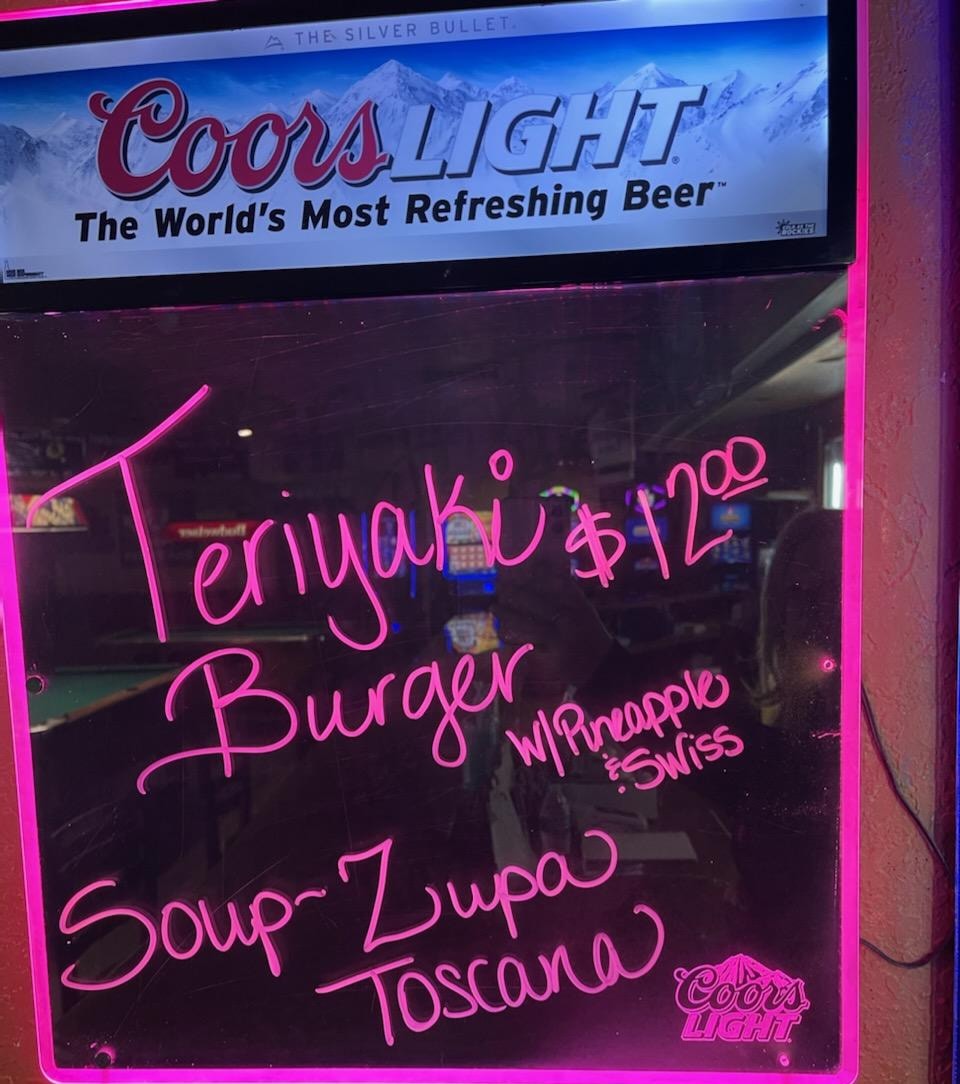 THE SILVER BULLET.
Coors LIGHT®
The World's Most Refreshing Beer™
COLD AS THE
ROCKIES
Budweiser
Teriyaki $12.00
Burger
W/ Pineapple
& Swiss
Soup- Zupa
Toscana
Coors
LIGHT